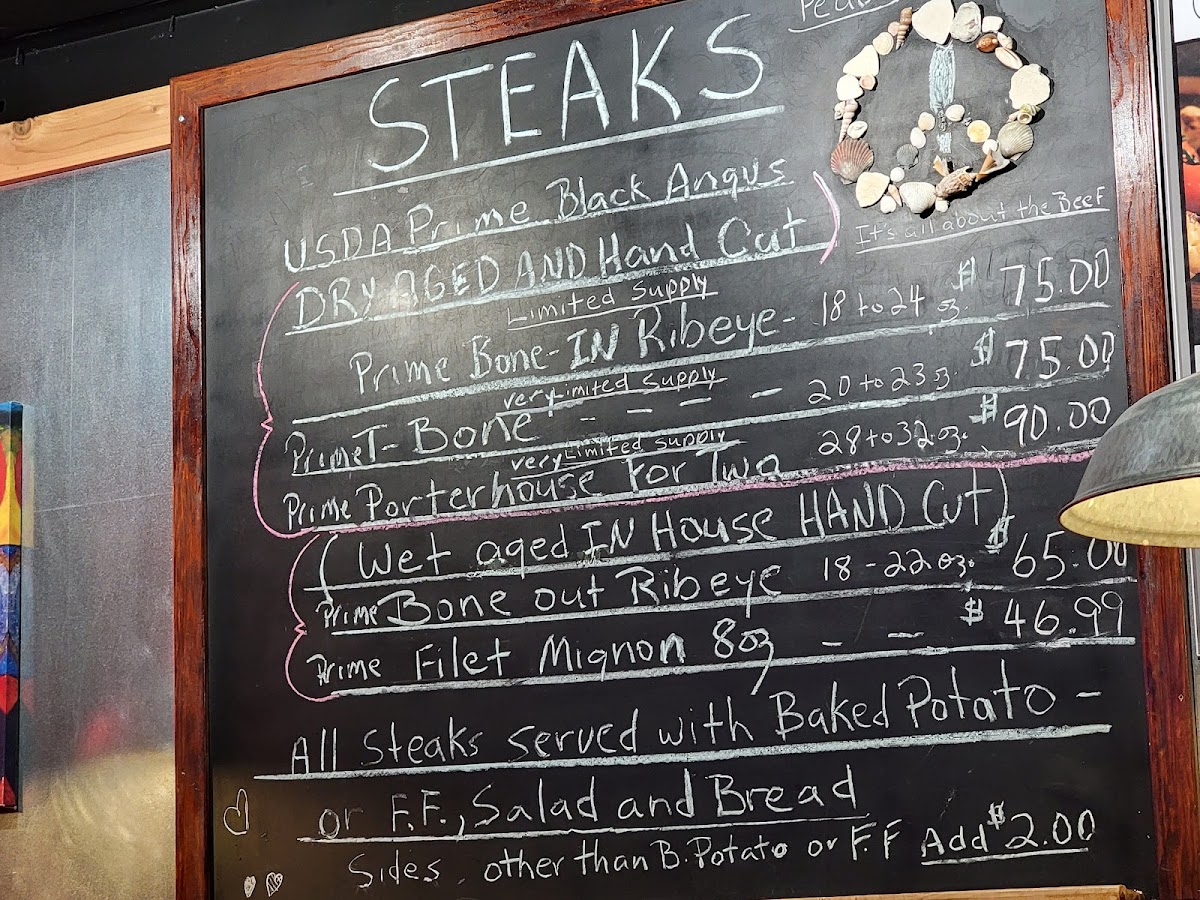 STEAKS
USDA Prime Black Angus
DRY AGED AND Hand Cut)
It's all about the Beef
Limited Supply
Prime Bone-IN Ribeye- 18 to 24 oz. $ 75.00
very Limited Supply
Prime T-Bone - - - - 20 to 23 oz. $ 75.00
very Limited Supply
Prime Porterhouse For Two 28 to 32.oz. $ 90.00
(Wet aged IN House HAND Cut)
Prime Bone out Ribeye 18-22oz. $ 65.00
Prime Filet Mignon 8oz - - $ 46.99
All Steaks served with Baked Potato -
or F.F., Salad and Bread
Sides, other than B.Potato or F.F Add $2.00